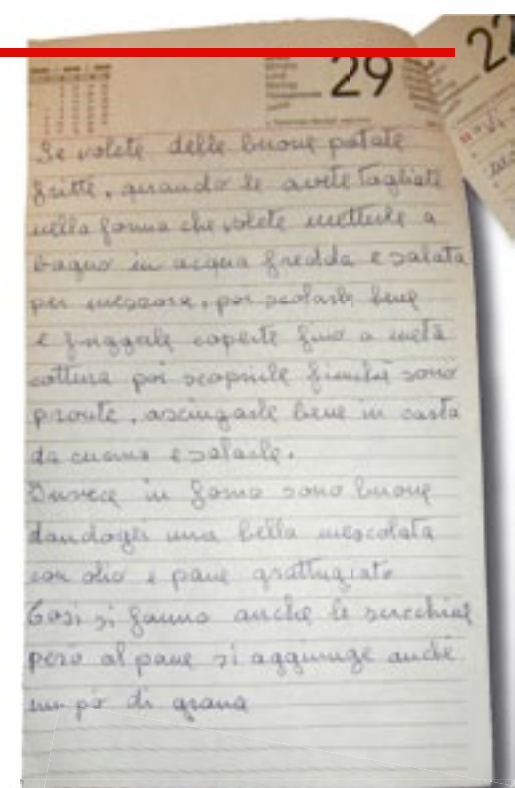 29
22
Se volete delle buone patate
fritte, quando le avete tagliate
nella forma che volete metterle a
bagno in acqua fredda e salata
per mezzora, poi scolarle bene
e friggerle coperte fino a metà
cottura poi scoprirle finchè sono
pronte, asciugarle bene in carta
da cucina e salarle.
Invece in forno sono buone
dandogli una bella mescolata
con olio e pane grattugiato
Così si fanno anche le zucchine
però al pane si aggiunge anche
un pò di grana